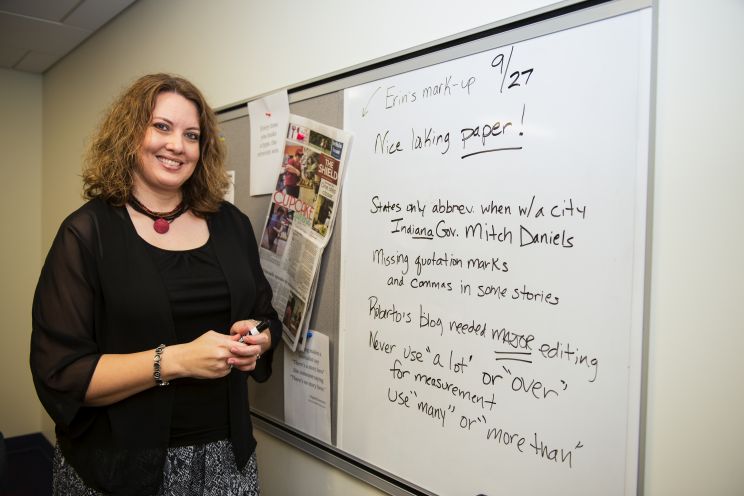 9/27
Erin's mark-up
Nice looking paper!
States only abbrev. when w/a city
Indiana Gov. Mitch Daniels
Missing quotation marks
and commas in some stories
Roberto's blog needed MAJOR editing
Never use "a lot" or "over"
for measurement
use "many" or "more than"
THE
SHIELD
CUPCAKE
"There's no story here"